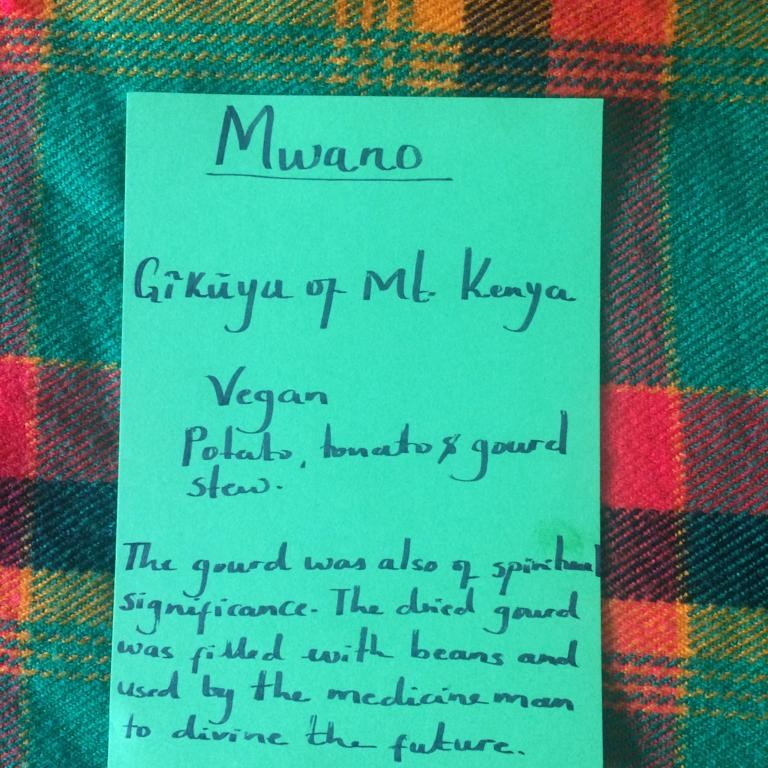 Mwano
Gĩkũyu of Mt. Kenya
Vegan
Potato, tomato & gourd
stew.
The gourd was also of spiritual
significance. The dried gourd
was filled with beans and
used by the medicine man
to divine the future.